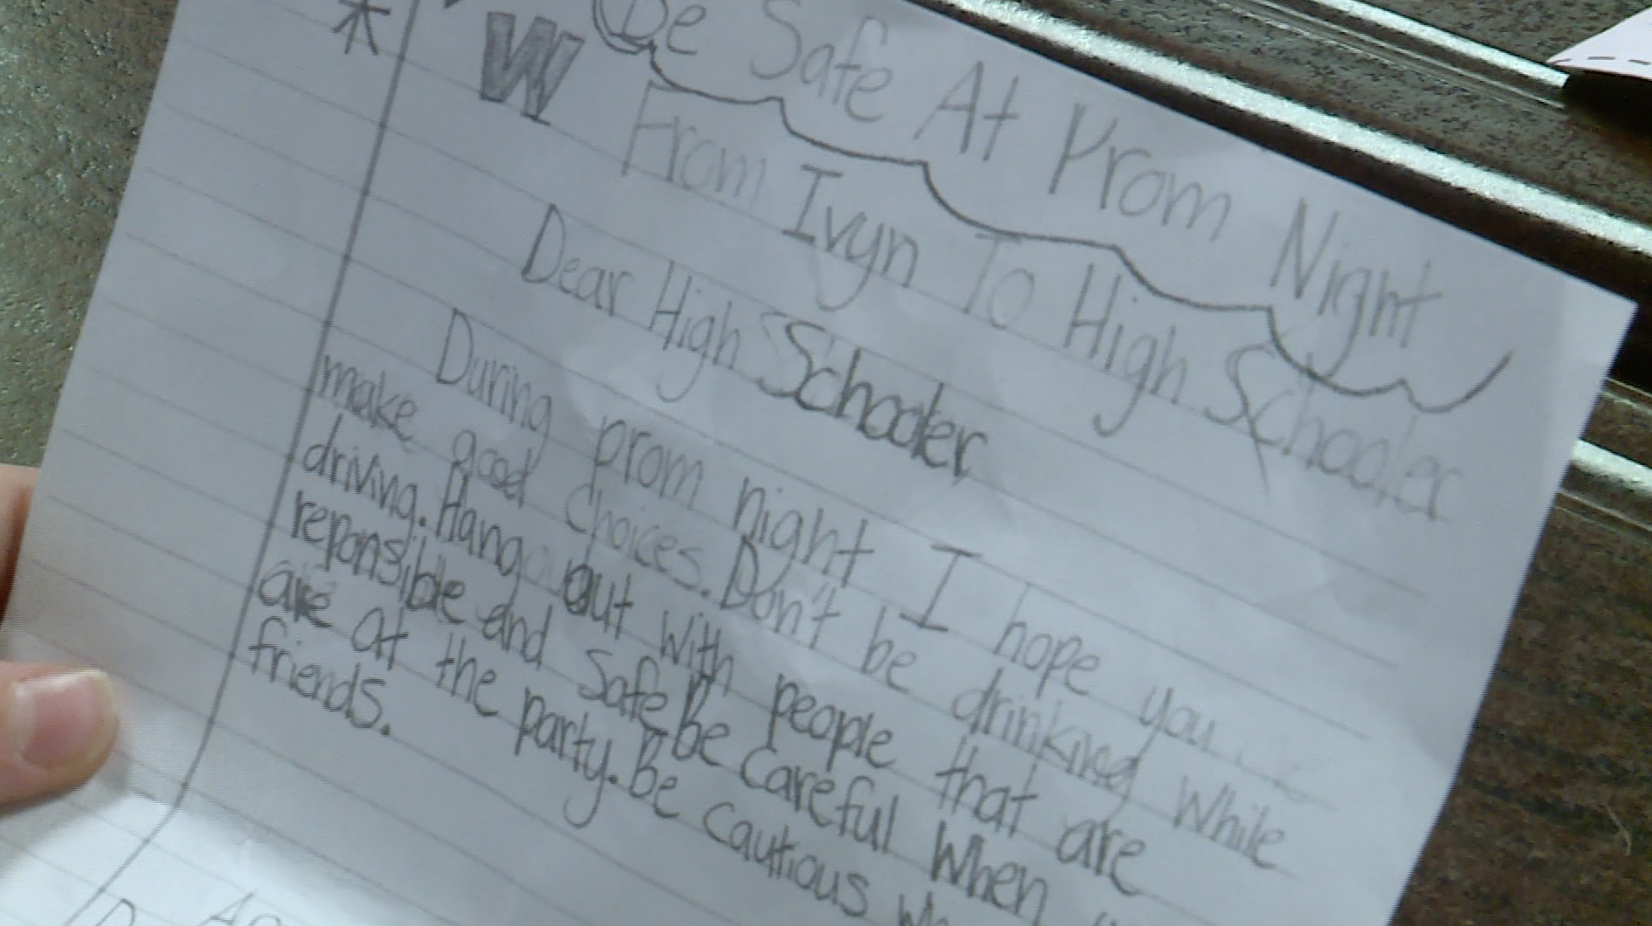 W Be Safe At Prom Night
From Ivyn To High Schooler
Dear High Schooler
During prom night I hope you
make good choices. Don't be drinking while
driving. Hang out with people that are
reponsible and safe. Be careful when
are at the party. Be cautious
friends.